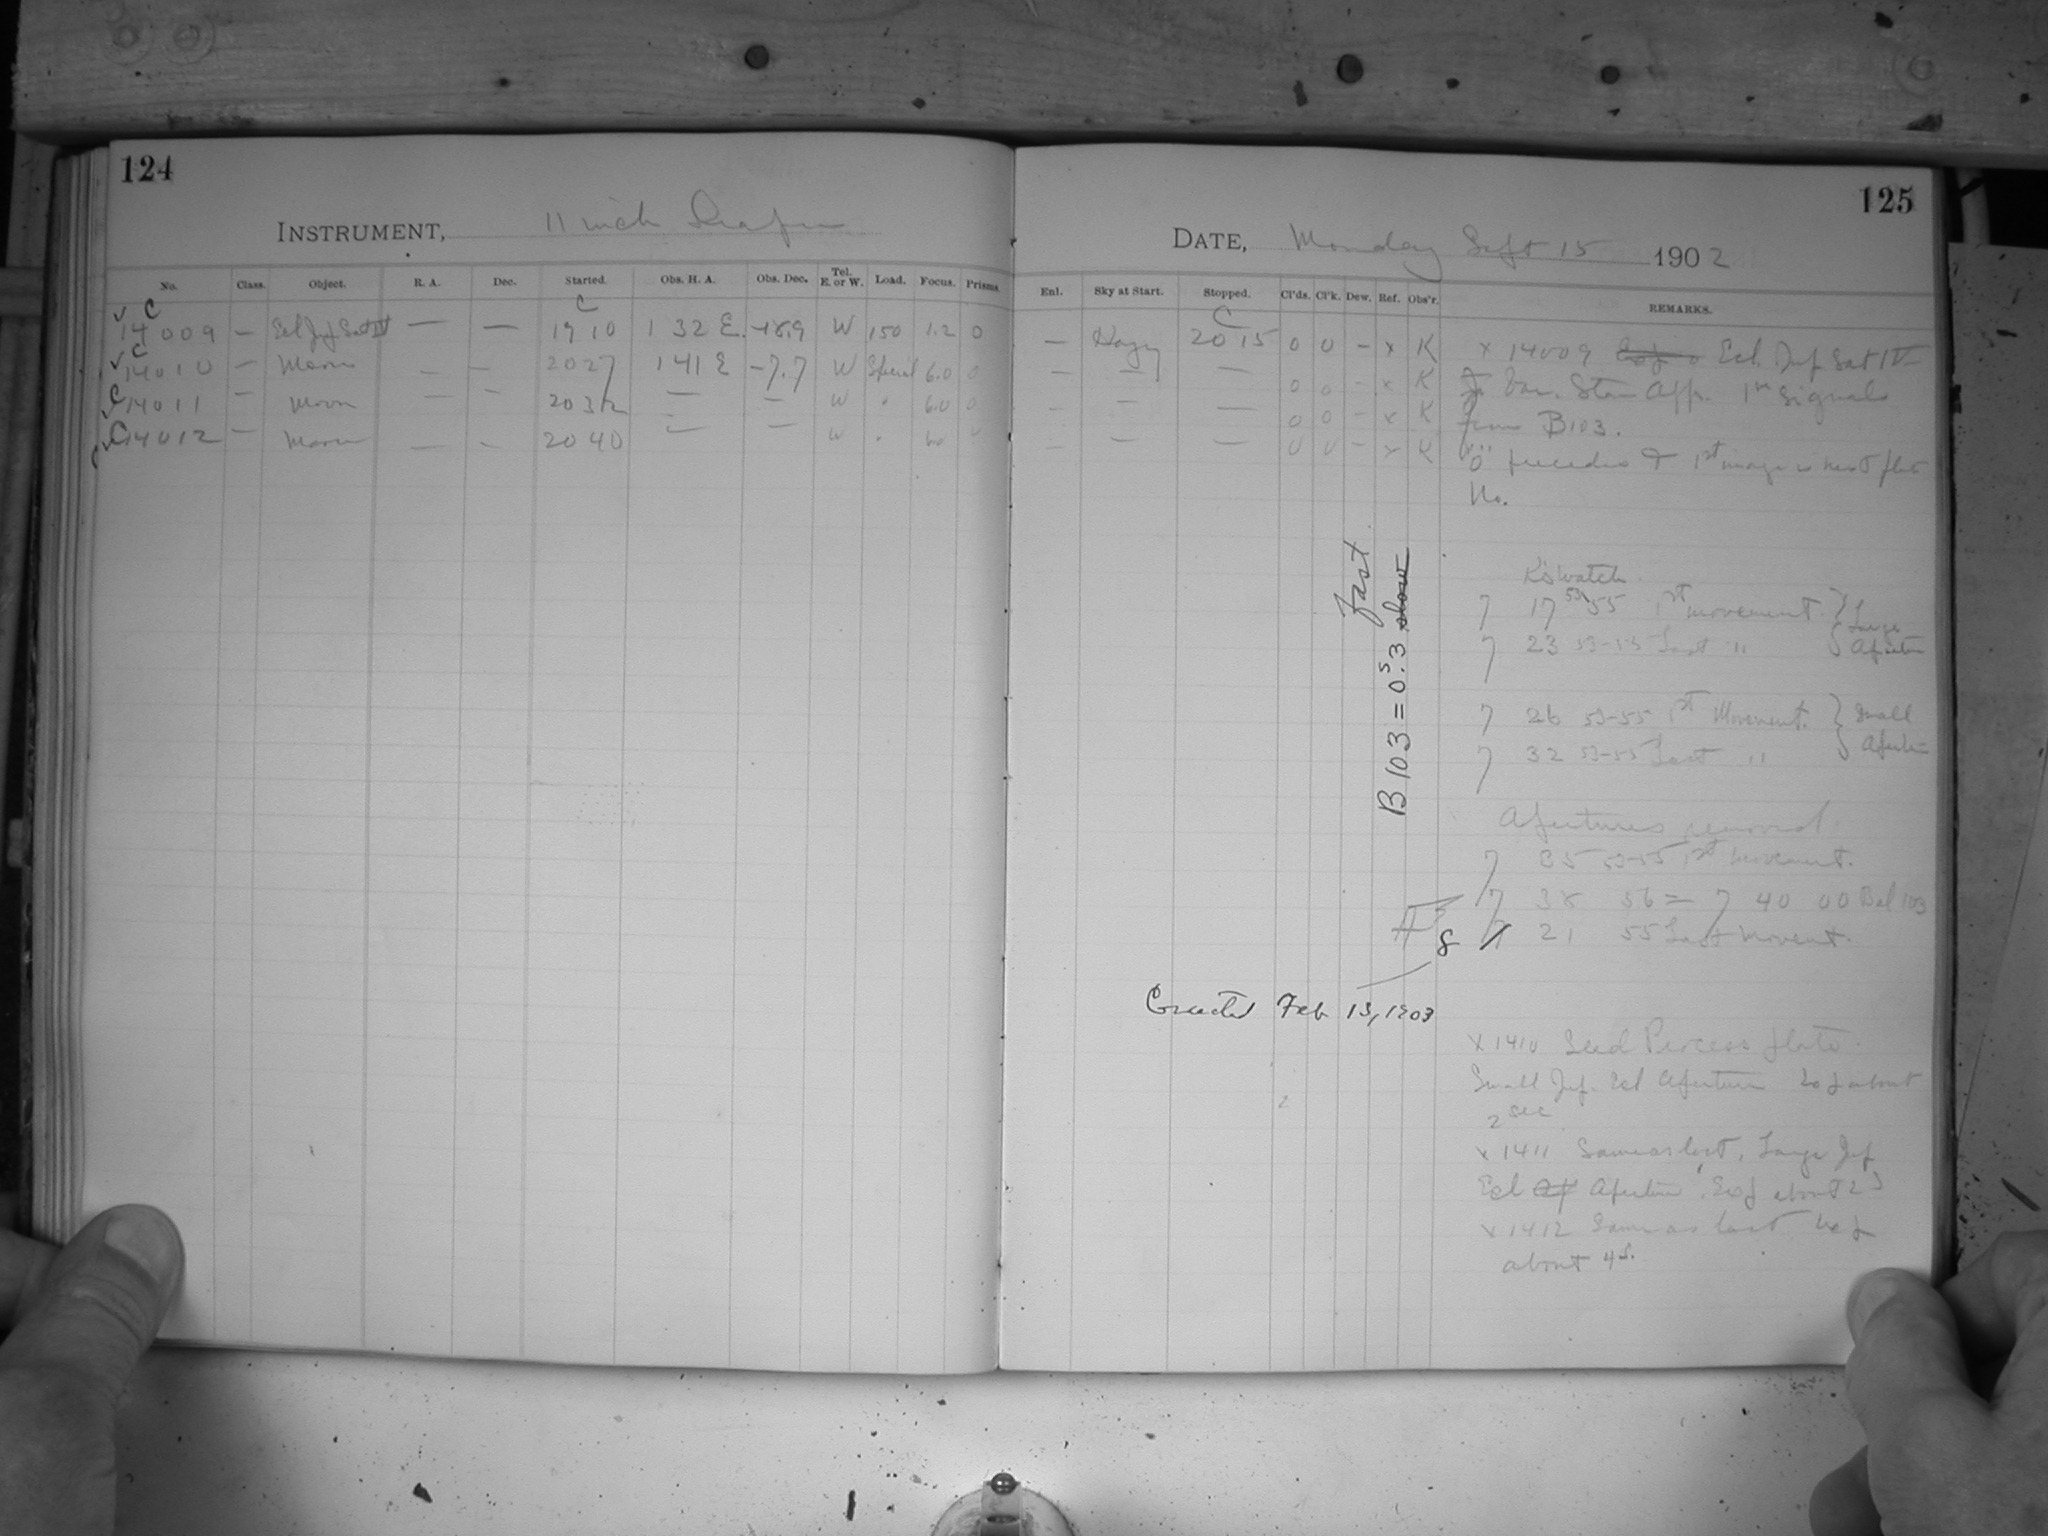 124
INSTRUMENT, 11 inch Draper
No. Class. Object. R. A. Dec. Started. Obs. H. A. Obs. Dec. Tel. E. or W. Load. Focus. Prisms.
14009 — Ecl Jup Sat IV — — 19 10 1 32 E. -18.9 W 150 1.2 0
14010 — Moon — — 20 27 1 41 E -7.7 W Special 6.0 0
14011 — Moon — — 20 32 — — W " 6.0 0
14012 — Moon — — 20 40 — — W "
125
DATE, Monday Sept 15 1902
Enl. Sky at Start. Stopped. Cl'ds. Cl'k. Dew. Ref. Obs'r. REMARKS.
— Hazy 20 15 0 0 — x K
— — — 0 0 - x K
— — 0 0 - x K
— — — 0 0 - x K
x 14009 Ecl. Jup Sat IV
Var. Star App. 1st signals
from B103.
"0" precedes & 1st image is next plate
No.
K's Watch
7 17 53 55 1st movement } Large
7 23 53-55 Last " } Aperture
7 26 53-55 1st Movement. } Small
7 32 53-55 Last " } Aperture
Apertures removed.
7 35 53-55 1st movement.
7 38 56 = 7 40 00 Bel 103
8 21 55 Last Movement.
B 103 = 0s.3 slow
fast
Corrected Feb 13, 1903
x 1410 Seed Process plate.
Small Jup. Ecl Aperture Exp about
2 sec
x 1411 Same as last, Large Jup
Ecl Ap Aperture, Exp about 2s
x 1412 Same as last Exp
about 4s.